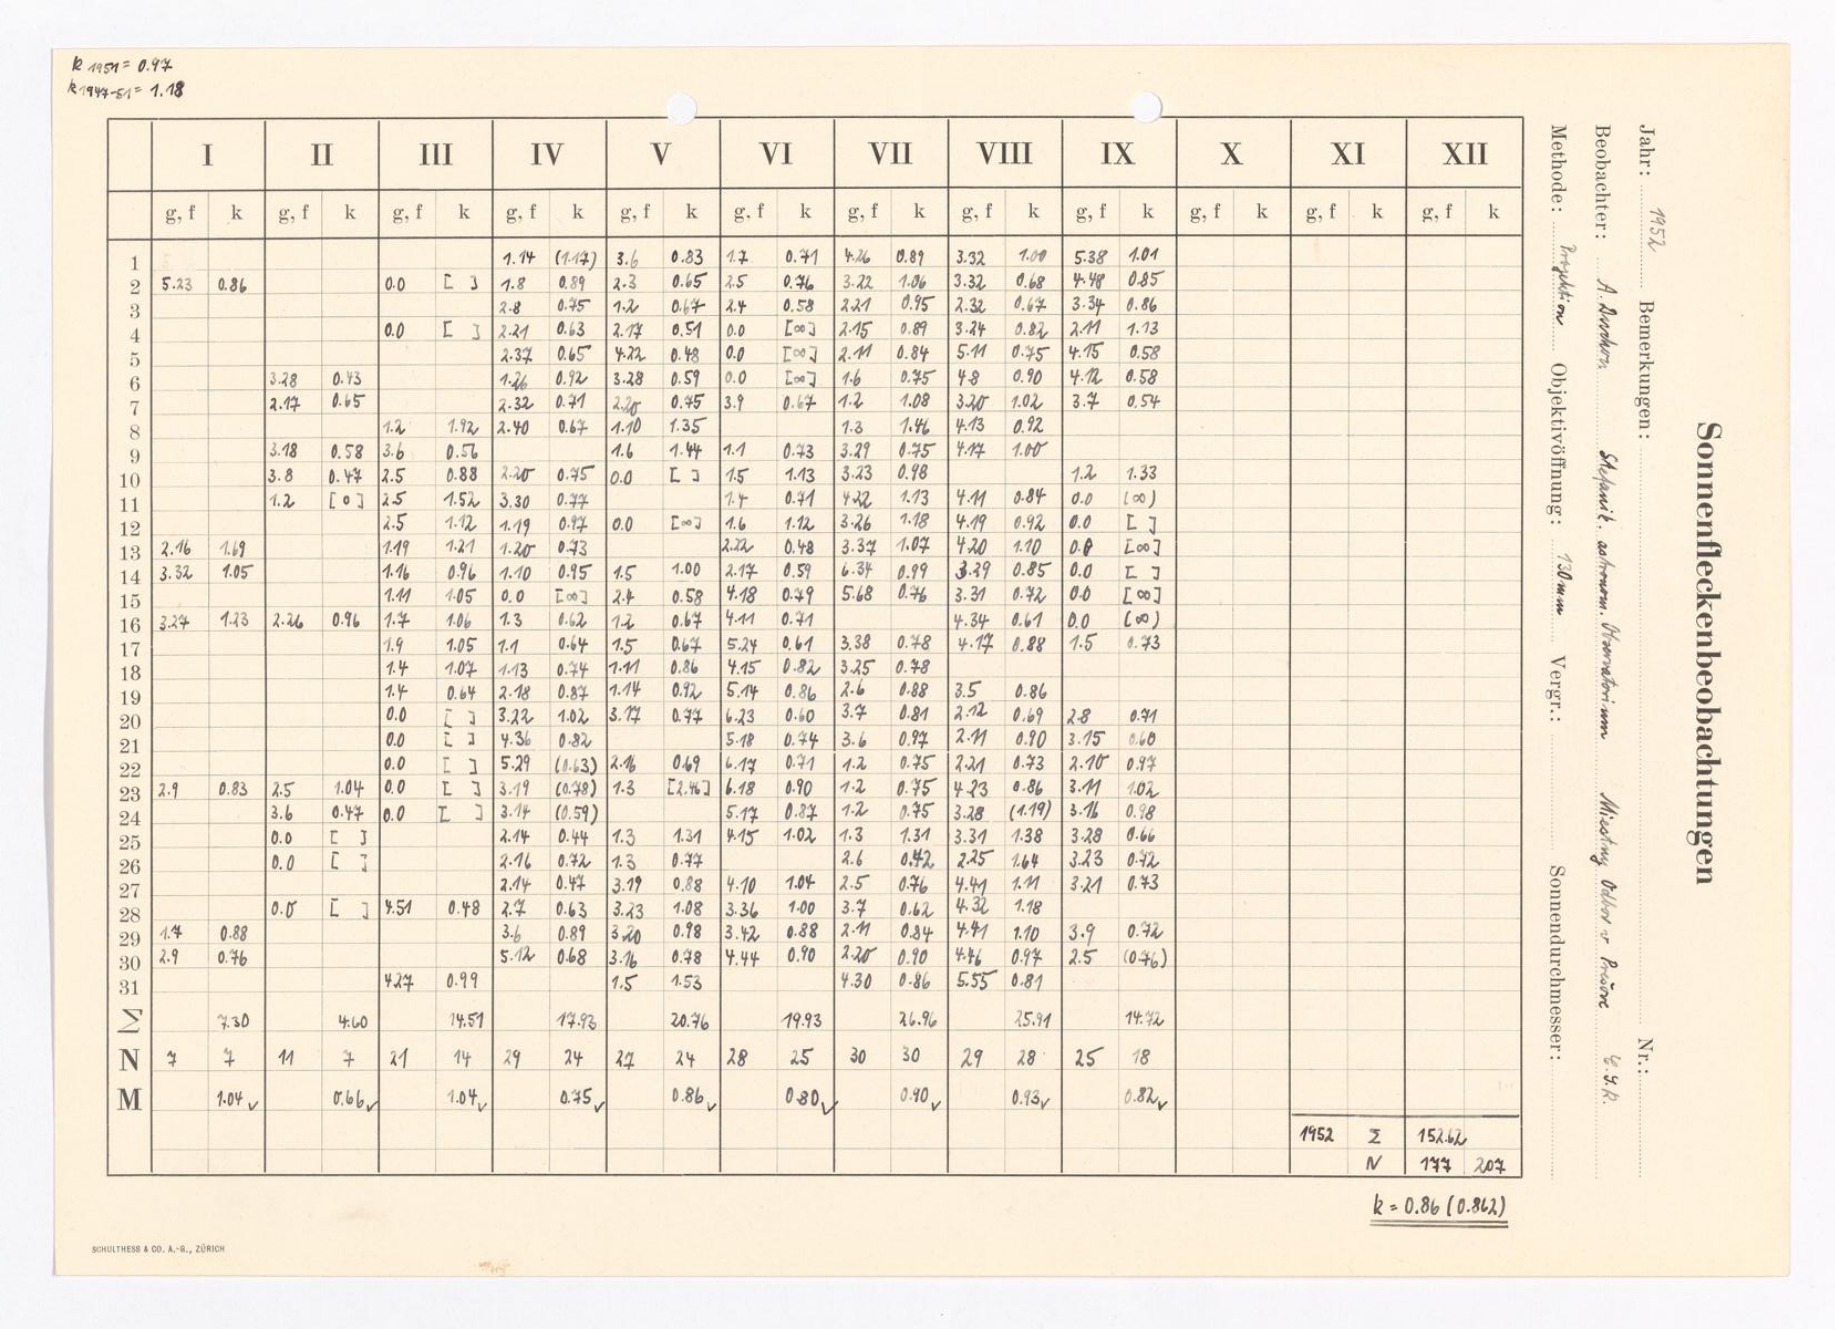 k 1951 = 0.97
k 1947-51 = 1.18
Sonnenfleckenbeobachtungen
Jahr: 1952 Bemerkungen: Nr.:
Beobachter: A. Stefanik. astronom. Observatorium Miestny Odbor v Prešove Č.S.R.
Methode: Projektion Objektivöffnung: 130mm Vergr.: Sonnendurchmesser:
I II III IV V VI VII VIII IX X XI XII
g, f k g, f k g, f k g, f k g, f k g, f k g, f k g, f k g, f k g, f k g, f k g, f k
1 1.14 (1.17) 3.6 0.83 1.7 0.71 4.26 0.89 3.32 1.00 5.38 1.01
2 5.23 0.86 0.0 [ ] 1.8 0.89 2.3 0.65 2.5 0.76 3.22 1.06 3.32 0.68 4.48 0.85
3 2.8 0.75 1.2 0.67 2.4 0.58 2.21 0.95 2.32 0.67 3.34 0.86
4 0.0 [ ] 2.21 0.63 2.17 0.51 0.0 [∞] 2.15 0.89 3.24 0.82 2.11 1.13
5 2.37 0.65 4.22 0.48 0.0 [∞] 2.11 0.84 5.11 0.75 4.15 0.58
6 3.28 0.43 1.26 0.92 3.28 0.59 0.0 [∞] 1.6 0.75 4.8 0.90 4.12 0.58
7 2.17 0.65 2.32 0.71 2.20 0.75 3.9 0.67 1.2 1.08 3.20 1.02 3.7 0.54
8 1.2 1.92 2.40 0.67 1.10 1.35 1.3 1.46 4.13 0.92
9 3.18 0.58 3.6 0.56 1.6 1.44 1.1 0.73 3.29 0.75 4.17 1.00
10 3.8 0.47 2.5 0.88 2.20 0.75 0.0 [ ] 1.5 1.13 3.23 0.98 1.2 1.33
11 1.2 [0] 2.5 1.52 3.30 0.77 1.4 0.71 4.22 1.13 4.11 0.84 0.0 (∞)
12 2.5 1.12 1.19 0.97 0.0 [∞] 1.6 1.12 3.26 1.18 4.19 0.92 0.0 [ ]
13 2.16 1.69 1.19 1.21 1.20 0.73 2.22 0.48 3.37 1.07 4.20 1.10 0.0 [∞]
14 3.32 1.05 1.16 0.96 1.10 0.95 1.5 1.00 2.17 0.59 6.34 0.99 3.29 0.85 0.0 [ ]
15 1.11 1.05 0.0 [∞] 2.4 0.58 4.18 0.79 5.68 0.76 3.31 0.72 0.0 [∞]
16 3.27 1.23 2.26 0.96 1.7 1.06 1.3 0.62 1.2 0.67 4.11 0.71 4.34 0.61 0.0 (∞)
17 1.9 1.05 1.1 0.64 1.5 0.67 5.24 0.61 3.38 0.78 4.17 0.88 1.5 0.73
18 1.4 1.07 1.13 0.74 1.11 0.86 4.15 0.82 3.25 0.78
19 1.4 0.64 2.18 0.87 1.14 0.92 5.14 0.86 2.6 0.88 3.5 0.86
20 0.0 [ ] 3.22 1.02 3.17 0.77 6.23 0.60 3.7 0.81 2.12 0.69 2.8 0.71
21 0.0 [ ] 4.36 0.82 5.18 0.74 3.6 0.97 2.11 0.90 3.15 0.60
22 0.0 [ ] 5.29 (0.63) 2.16 0.69 6.17 0.71 1.2 0.75 2.21 0.73 2.10 0.97
23 2.9 0.83 2.5 1.04 0.0 [ ] 3.19 (0.78) 1.3 [2.46] 6.18 0.90 1.2 0.75 4.23 0.86 3.11 1.02
24 3.6 0.47 0.0 [ ] 3.14 (0.59) 5.17 0.87 1.2 0.75 3.28 (1.19) 3.16 0.98
25 0.0 [ ] 2.14 0.44 1.3 1.31 4.15 1.02 1.3 1.31 3.31 1.38 3.28 0.66
26 0.0 [ ] 2.16 0.72 1.3 0.77 2.6 0.42 2.25 1.64 3.23 0.72
27 2.14 0.47 3.19 0.88 4.10 1.04 2.5 0.76 4.41 1.11 3.21 0.73
28 0.0 [ ] 4.51 0.48 2.7 0.63 3.23 1.08 3.36 1.00 3.7 0.62 4.32 1.18
29 1.7 0.88 3.6 0.89 3.20 0.98 3.42 0.88 2.11 0.84 4.41 1.10 3.9 0.72
30 2.9 0.76 5.12 0.68 3.16 0.78 4.44 0.90 2.20 0.90 4.46 0.97 2.5 (0.76)
31 4.27 0.99 1.5 1.53 4.30 0.86 5.55 0.81
Σ 7.30 4.60 14.51 17.93 20.76 19.93 26.96 25.91 14.72
N 7 7 11 7 21 14 29 24 27 24 28 25 30 30 29 28 25 18
M 1.04✓ 0.66✓ 1.04✓ 0.75✓ 0.86✓ 0.80✓ 0.90✓ 0.93✓ 0.82✓
1952 Σ 152.62
N 177 207
k = 0.86 (0.862)
SCHULTHESS & CO. A.-G., ZÜRICH